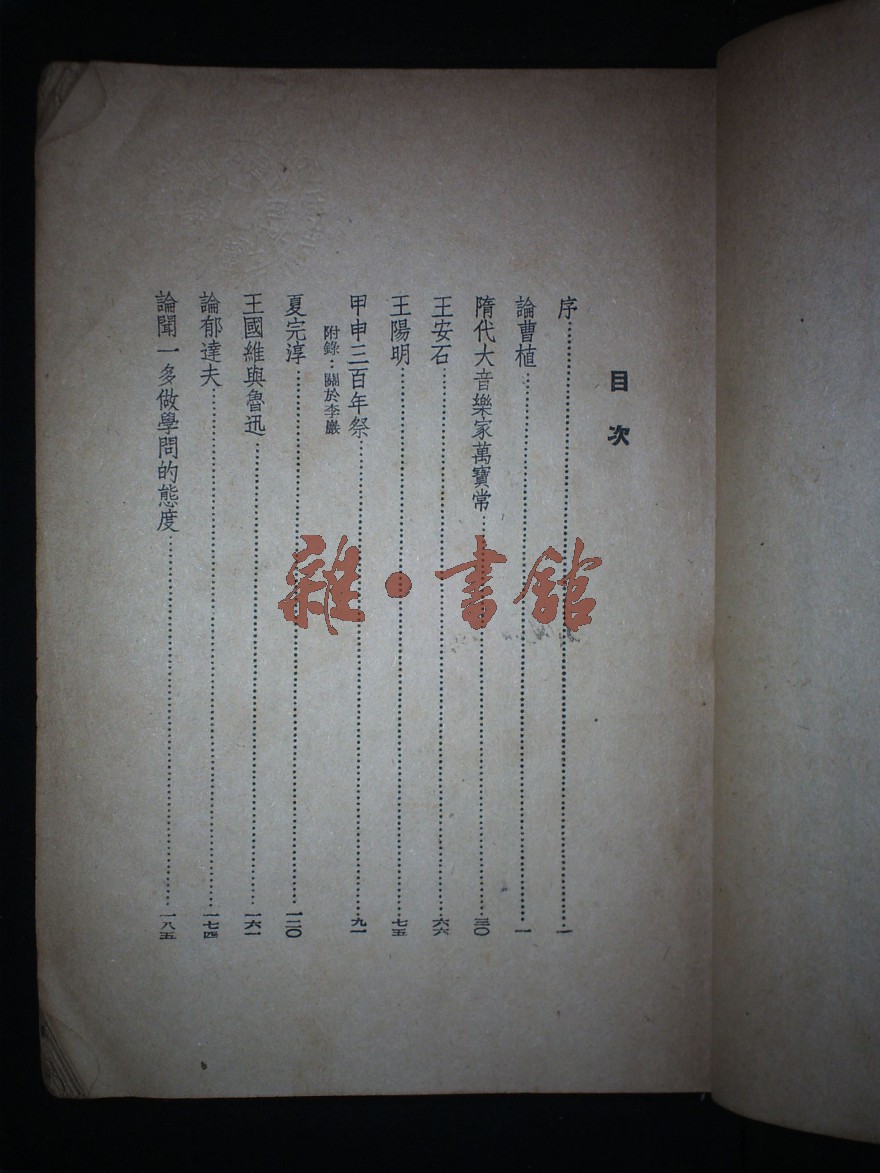 目次
序……一
論曹植……一
隋代大音樂家萬寶常……三〇
王安石……六六
王陽明……七五
甲申三百年祭……九一
附錄：關於李巖
夏完淳……一二〇
王國維與魯迅……一六一
論郁達夫……一七四
論聞一多做學問的態度……一八五
雜·書館